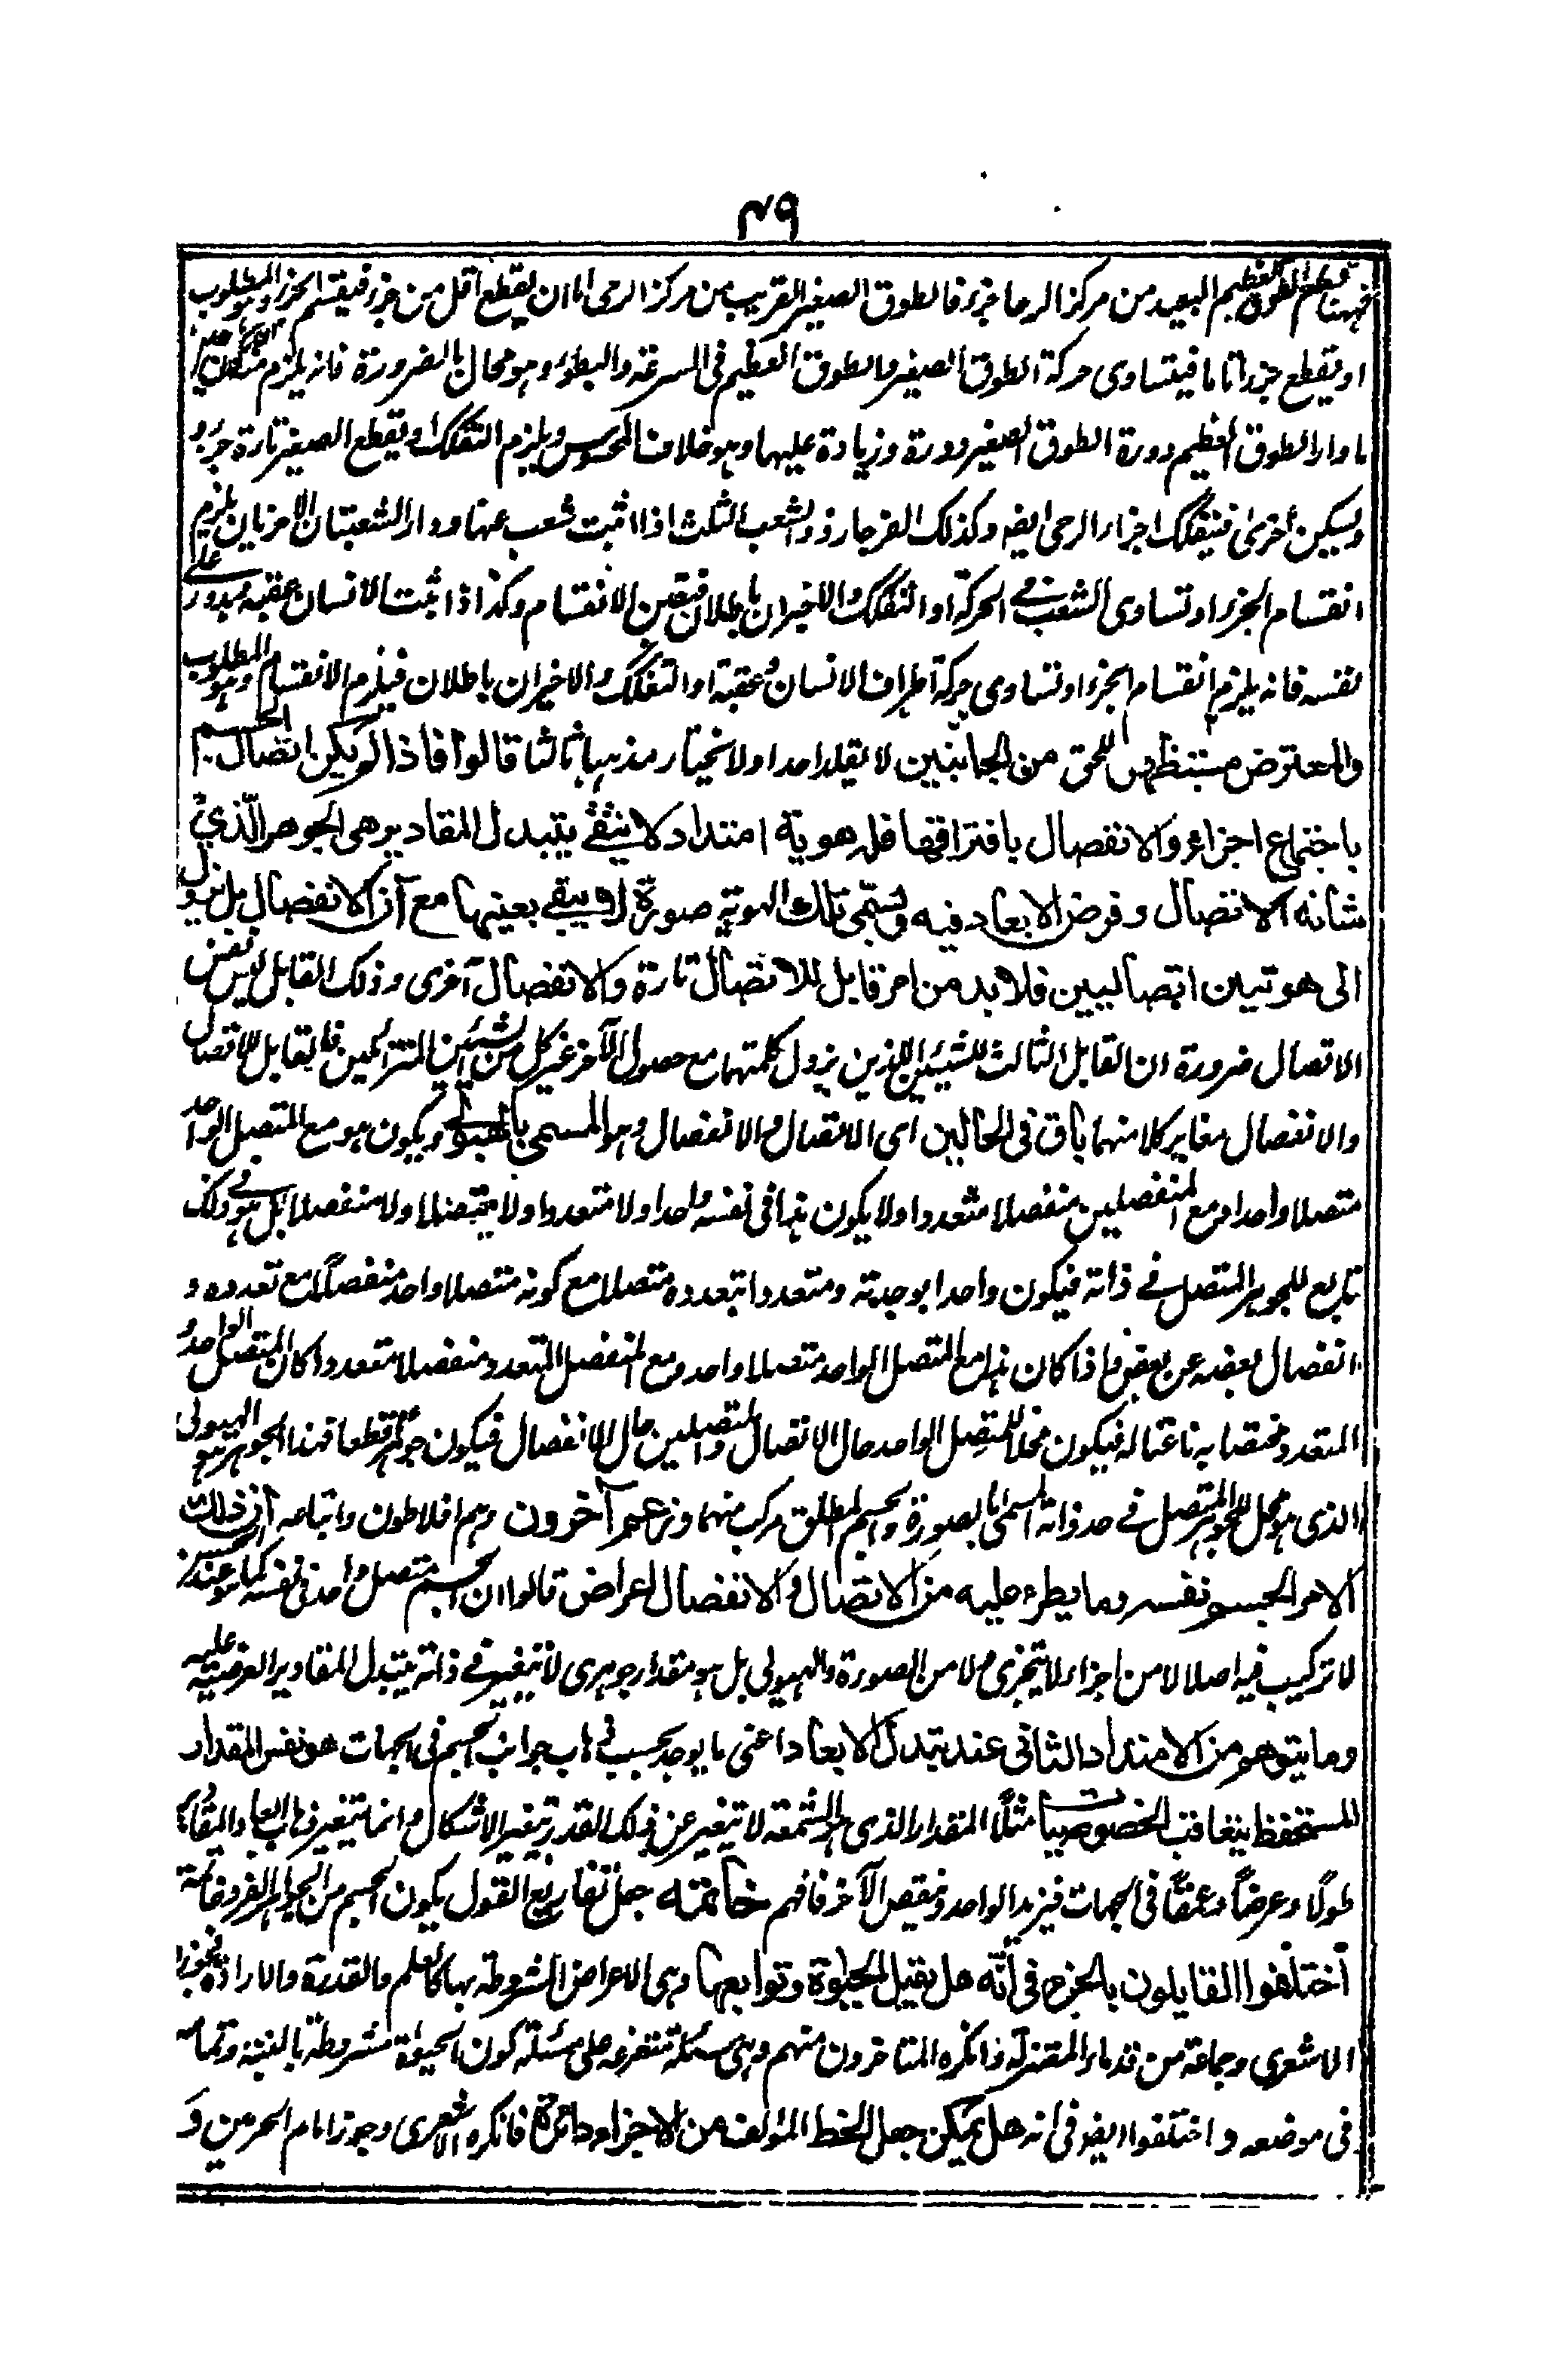 ٤٩
فههنا يقطع الطوق العظيم البعيد من مركز الرحا جزء فالطوق الصغير القريب من مركز الرحى اما ان يقطع اقل من جزء فينقسم الجزء وهو المطلوب
او يقطع جزءا تاما فيتساوى حركة الطوق الصغير والطوق العظيم فى السرعة والبطؤ وهو محال بالضرورة فانه يلزم
ما دار الطوق العظيم دورة الطوق الصغير دورة وزيادة عليها وهو خلاف المحسوس ويلزم التفكك او يقطع الصغير تارة جزء و
ويسكن أخرى فينفكك اجزاء الرحى ايضه وكذلك الفرجار ذو الشعب الثلث اذا اثبت شعب عنها ودار الشعبتان الاخريان يلزم
انقسام الجزء او تساوى الشعب فى الحركة او التفكك والاخيران باطلان فتعين الانقسام وكذا اذا ثبت الانسان عقبه فيدور على
نفسه فانه يلزم انقسام الجزء او تساوى حركة اطراف الانسان وعقبة او التفكك والاخيران باطلان فيلزم الانقسام وهو المطلوب
والمعترض مستنظهر للحق من الجانبين لا يقلد احدا ولا يختار مذهبا ثالثا قالوا فاذا لم يكن اتصال الجسم
باجتماع اجزاء والانفصال بافتراقها فله هوية امتداد لا ينتفى بتبدل المقادير هى الجوهر الّذي
شانه الاتصال وفرض الابعاد فيه وتسمى تلك الهوية صورة لا يبقى بعينها مع آن الانفصال بل تزول
الى هوتيين اتصاليين فلا بد من امر قابل للاتصال تارة والانفصال أخرى وذلك القابل ليس نفس
الاتصال ضرورة ان القابل الثالث للشيئين اللذين يزول كلمتهما مع حصول الآخر غير كل من الشيئين المتزائلين فالقابل للاتصال
والانفصال مغاير كلا منهما باق فى الحالين اى الاتصال والانفصال وهو المسمى بالهيولى ويكون هو مع المتصل الواحد
متصلا واحدا ومع المنفصلين منفصلا متعددا ولا يكون هذا فى نفسه واحدا ولا متعددا ولا متصلا ولا منفصلا بل هو فى ذلك
تابع للجوهر المتصل فى ذاته فيكون واحدا بوحدته ومتعددا بتعدده متصلا مع كونه متصلا واحد منفصلًا مع تعدده و
انفصال بعضه عن بعض واذا كان هذا مع المتصل الواحد متصلا واحد ومع المنفصل المتعدد منفصلا متعددا كان المتصل الواحد و
المتعدد مختصا به ناعتا له فيكون محلا للمتصل الواحد حال الاتصال والمتصلين حال الانفصال فيكون جوهرا قطعا فهذا الجوهر هو الهيولى
الذى هو محل للجوهر المتصل فى حد ذاته المسمى بالصورة والجسم المطلق مركب منهما وزعم آخرون وهم افلاطون واتباعه ان ذلك
الامر الجسم نفسه وما يطرء عليه من الاتصال والانفصال اعراض قالوا ان الجسم متصل واحد فى نفسه كما هو عند الحس
لا تركيب فيه اصلا لا من اجزاء لا يتجزى ولا من الصورة والهيولى بل هو مقدار جوهرى لا يتغير فى ذاته بتبدل المقادير العرضية عليه
وما يتوهم من الامتداد الثانى عند تبدل الابعاد اعنى ما يوجد بحسب ذهاب جوانب الجسم فى الجهات هو نفس المقدار
المستحفظ بتعاقب الخصوصيات مثلًا المقدار الذى هو الشمعة لا يتغير عن ذلك القدر بتغير الاشكال وانما يتغير ذهاب
طولًا وعرضًا وعمقًا فى الجهات فيزيد الواحد وينقص الآخر فافهم خاتمة جعل تفاريع القول بكون الجسم من الجواهر الفردة فائمة
أختلفوا القايلون بالجزء فى أنّه هل يقبل الحيوة وتوابعها وهى الاعراض المشروطة بها كالعلم والقدرة والارادة فجوزه
الاشعرى وجماعة من قدماء المعتزلة وانكره المتاخرون منهم وهى مسئلة متفرعة على مسئلة كون الحيوة مشروطة بالبنية وتمامه
فى موضعه واختلفوا ايضه فى انه هل يمكن جعل الخط المؤلف من الاجزاء دائرة فانكره الاشعرى وجوزه امام الحرمين وَ